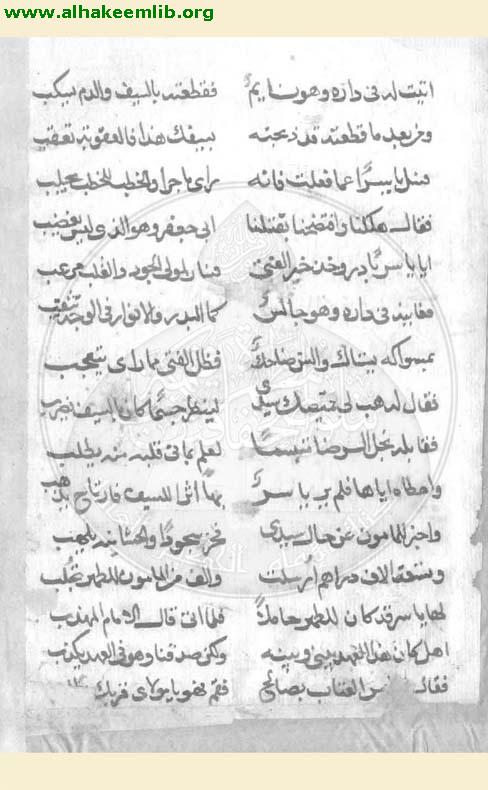 www.alhakeemlib.org
اتيت له في داره وهو نايم فقطعته بالسيف والدم يسكب
وخر بعد ما قطعته قد ذبحته بسيفك هذا فالعقوبة تعقب
فسل ياسرا عما فعلت فانه راى ما جرا والخطب للخطب يجلب
فقال هلكنا وافتضحنا بقتلنا ابي جعفر وهو الذي ليس يغضب
ايا ياسر بادر وخذ خبر الفتى فسار لمولى الجود والقلب مرعب
فقابله في داره وهو جالس كما البدر والانوار في الوجه
بمسواكه يستاك والسن ضاحك فظل الفتى مما راى يتعجب
فقال له هب لي قميصك سيدي لينظر جسما كان السيف يضرب
فقابله نجل الرضا متبسما لعلم بما في قلبه منه يطلب
واعطاه اياها فلم ير ياسر بها اثرا للسيف فارتاح
واخبر المامون عن حال سيدي فخر سجودا والحشا منه يلهب
وستة الاف دراهم ارسلت والف من المامون للطهر تجلب
لها ياسر قد كان للطهر حاملا فلما اتى قال الامام المهذب
اهل كان هذا العهد بيني وبينه ولكن صدقنا وهو في العهد يكذب
فقال العتاب بصالح فقم فهو يا مولاي